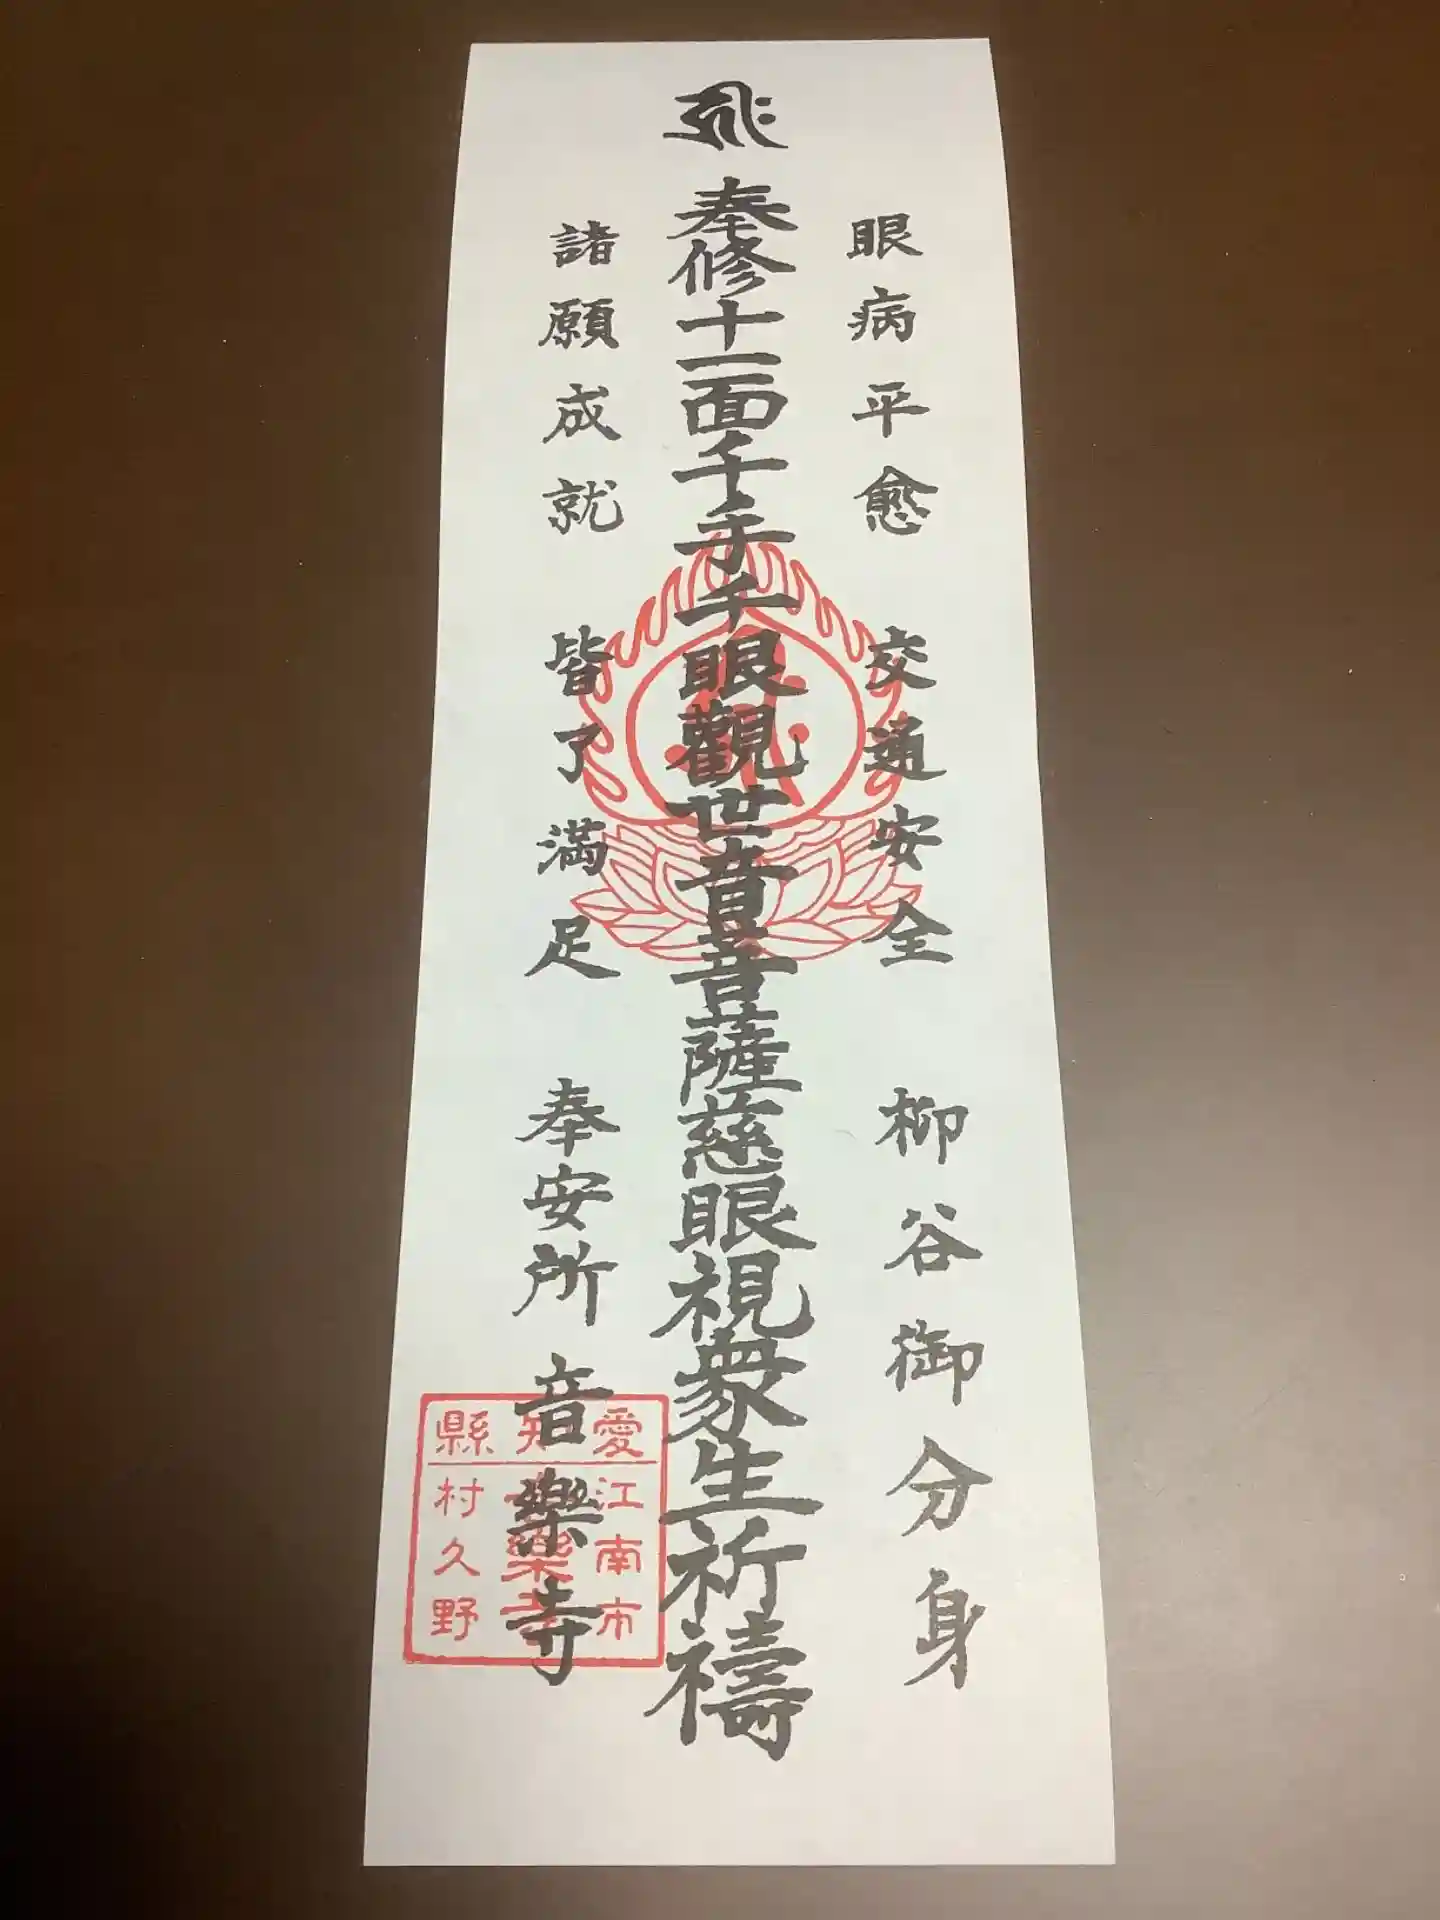 眼病平愈 交通安全 柳谷御分身
奉修十一面千手千眼觀世音菩薩慈眼視衆生祈禱
諸願成就 皆了満足 奉安所 音樂寺
愛知縣
江南市
村久野